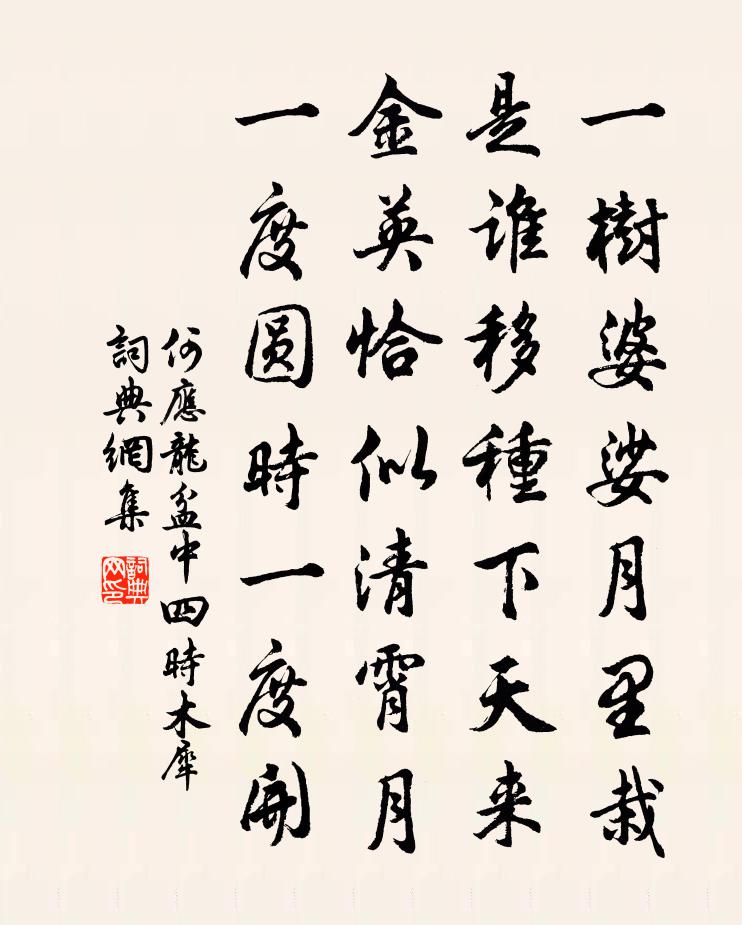 一樹婆娑月里栽
是誰移種下天来
金英恰似清霄月
一度圆時一度開
何應龍盆中四時木犀
詞典網集
詞典网印